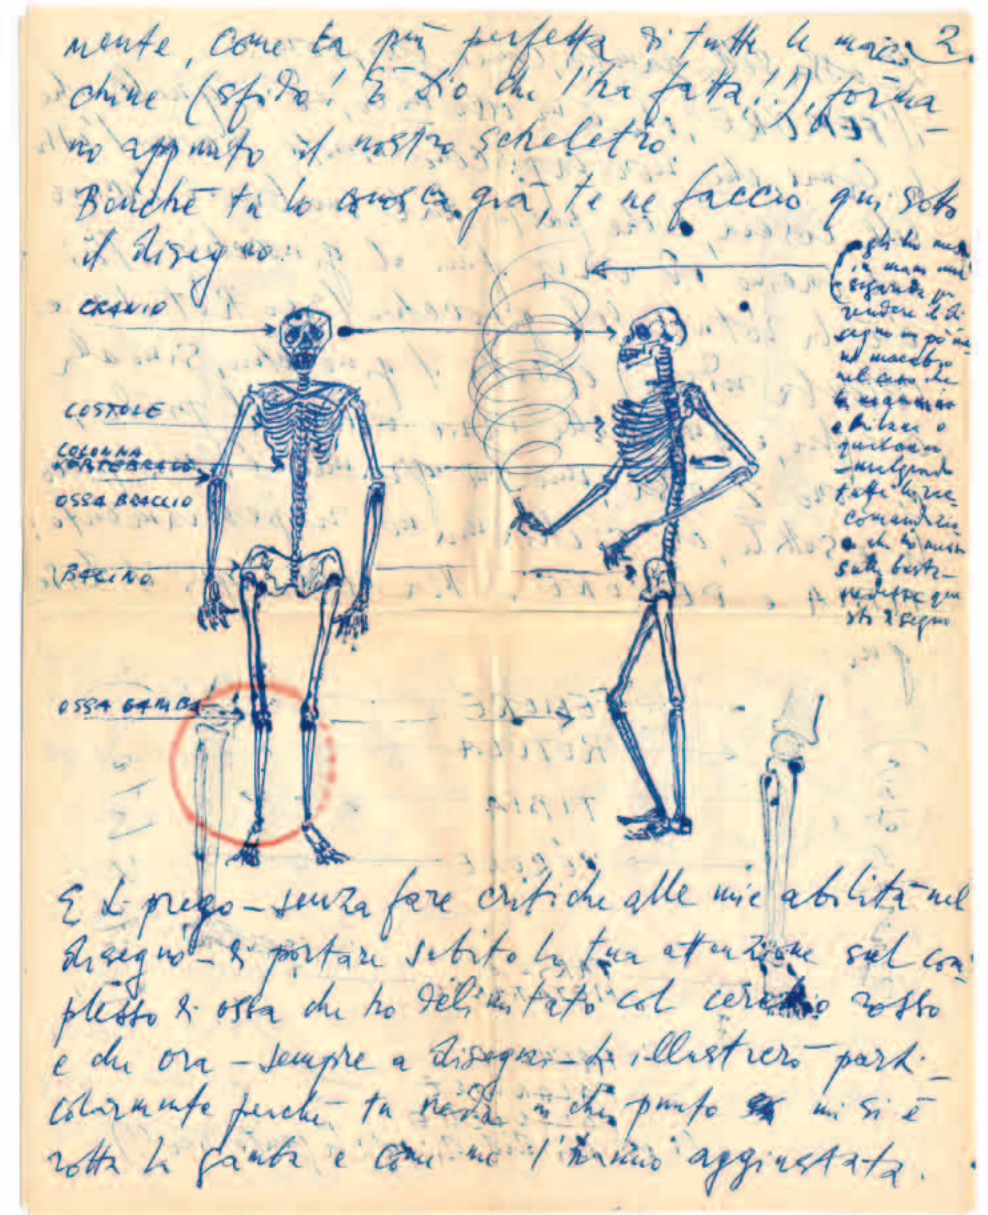 mente, come la più perfetta di tutte le mac- 2.
chine (sfido! È Dio che l'ha fatta!!), forma-
no appunto il nostro scheletro
Benché tu lo conosca già, te ne faccio qui sotto
il disegno.
CRANIO
COSTOLE
COLONNA
VERTEBRALE
OSSA BRACCIO
BACINO
OSSA GAMBA
gli ho messo
in mano una
sigaretta per
rendere il di-
segno un pò me-
no macabro
nel caso che
la mammina
e
qualcuno
-malgrado
tutte le rac-
comandazioni
che ho messo
sulla busta-
vedesse que-
sto disegno
FEMORE
ROTULA
TIBIA
PERONE
E ti prego - senza fare critiche alle mie abilità nel
disegno - di portare subito la tua attenzione sul com-
plesso di ossa che ho delimitato col cerchio rosso
e che ora - sempre a disegni - ti illustrerò parti-
colarmente perché tu veda in che punto mi si è
rotta la gamba e come me l'hanno aggiustata.